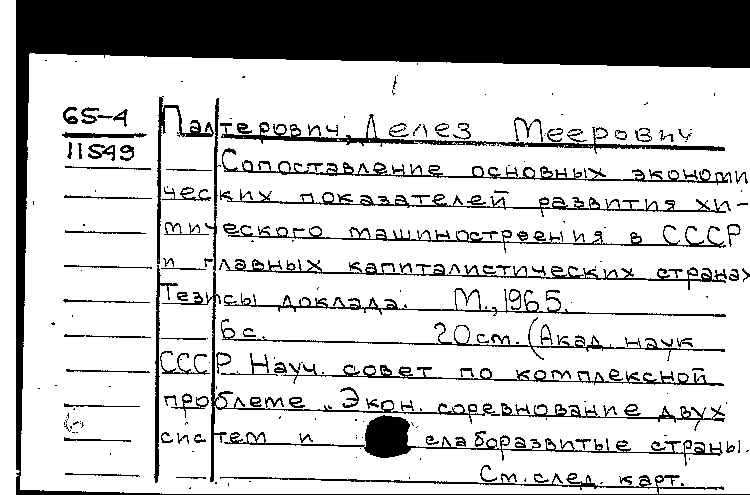 65-4 Палтерович, Делез Меерович
11549
Сопоставление основных экономи
ческих показателей развития хи-
мического машиностроения в СССР
и главных капиталистических странах
Тезисы доклада. М., 1965.
6с. 20см. (Акад. наук
СССР. Науч. совет по комплексной
проблеме „Экон. соревнование двух
систем и слаборазвитые страны.
См. след. карт.